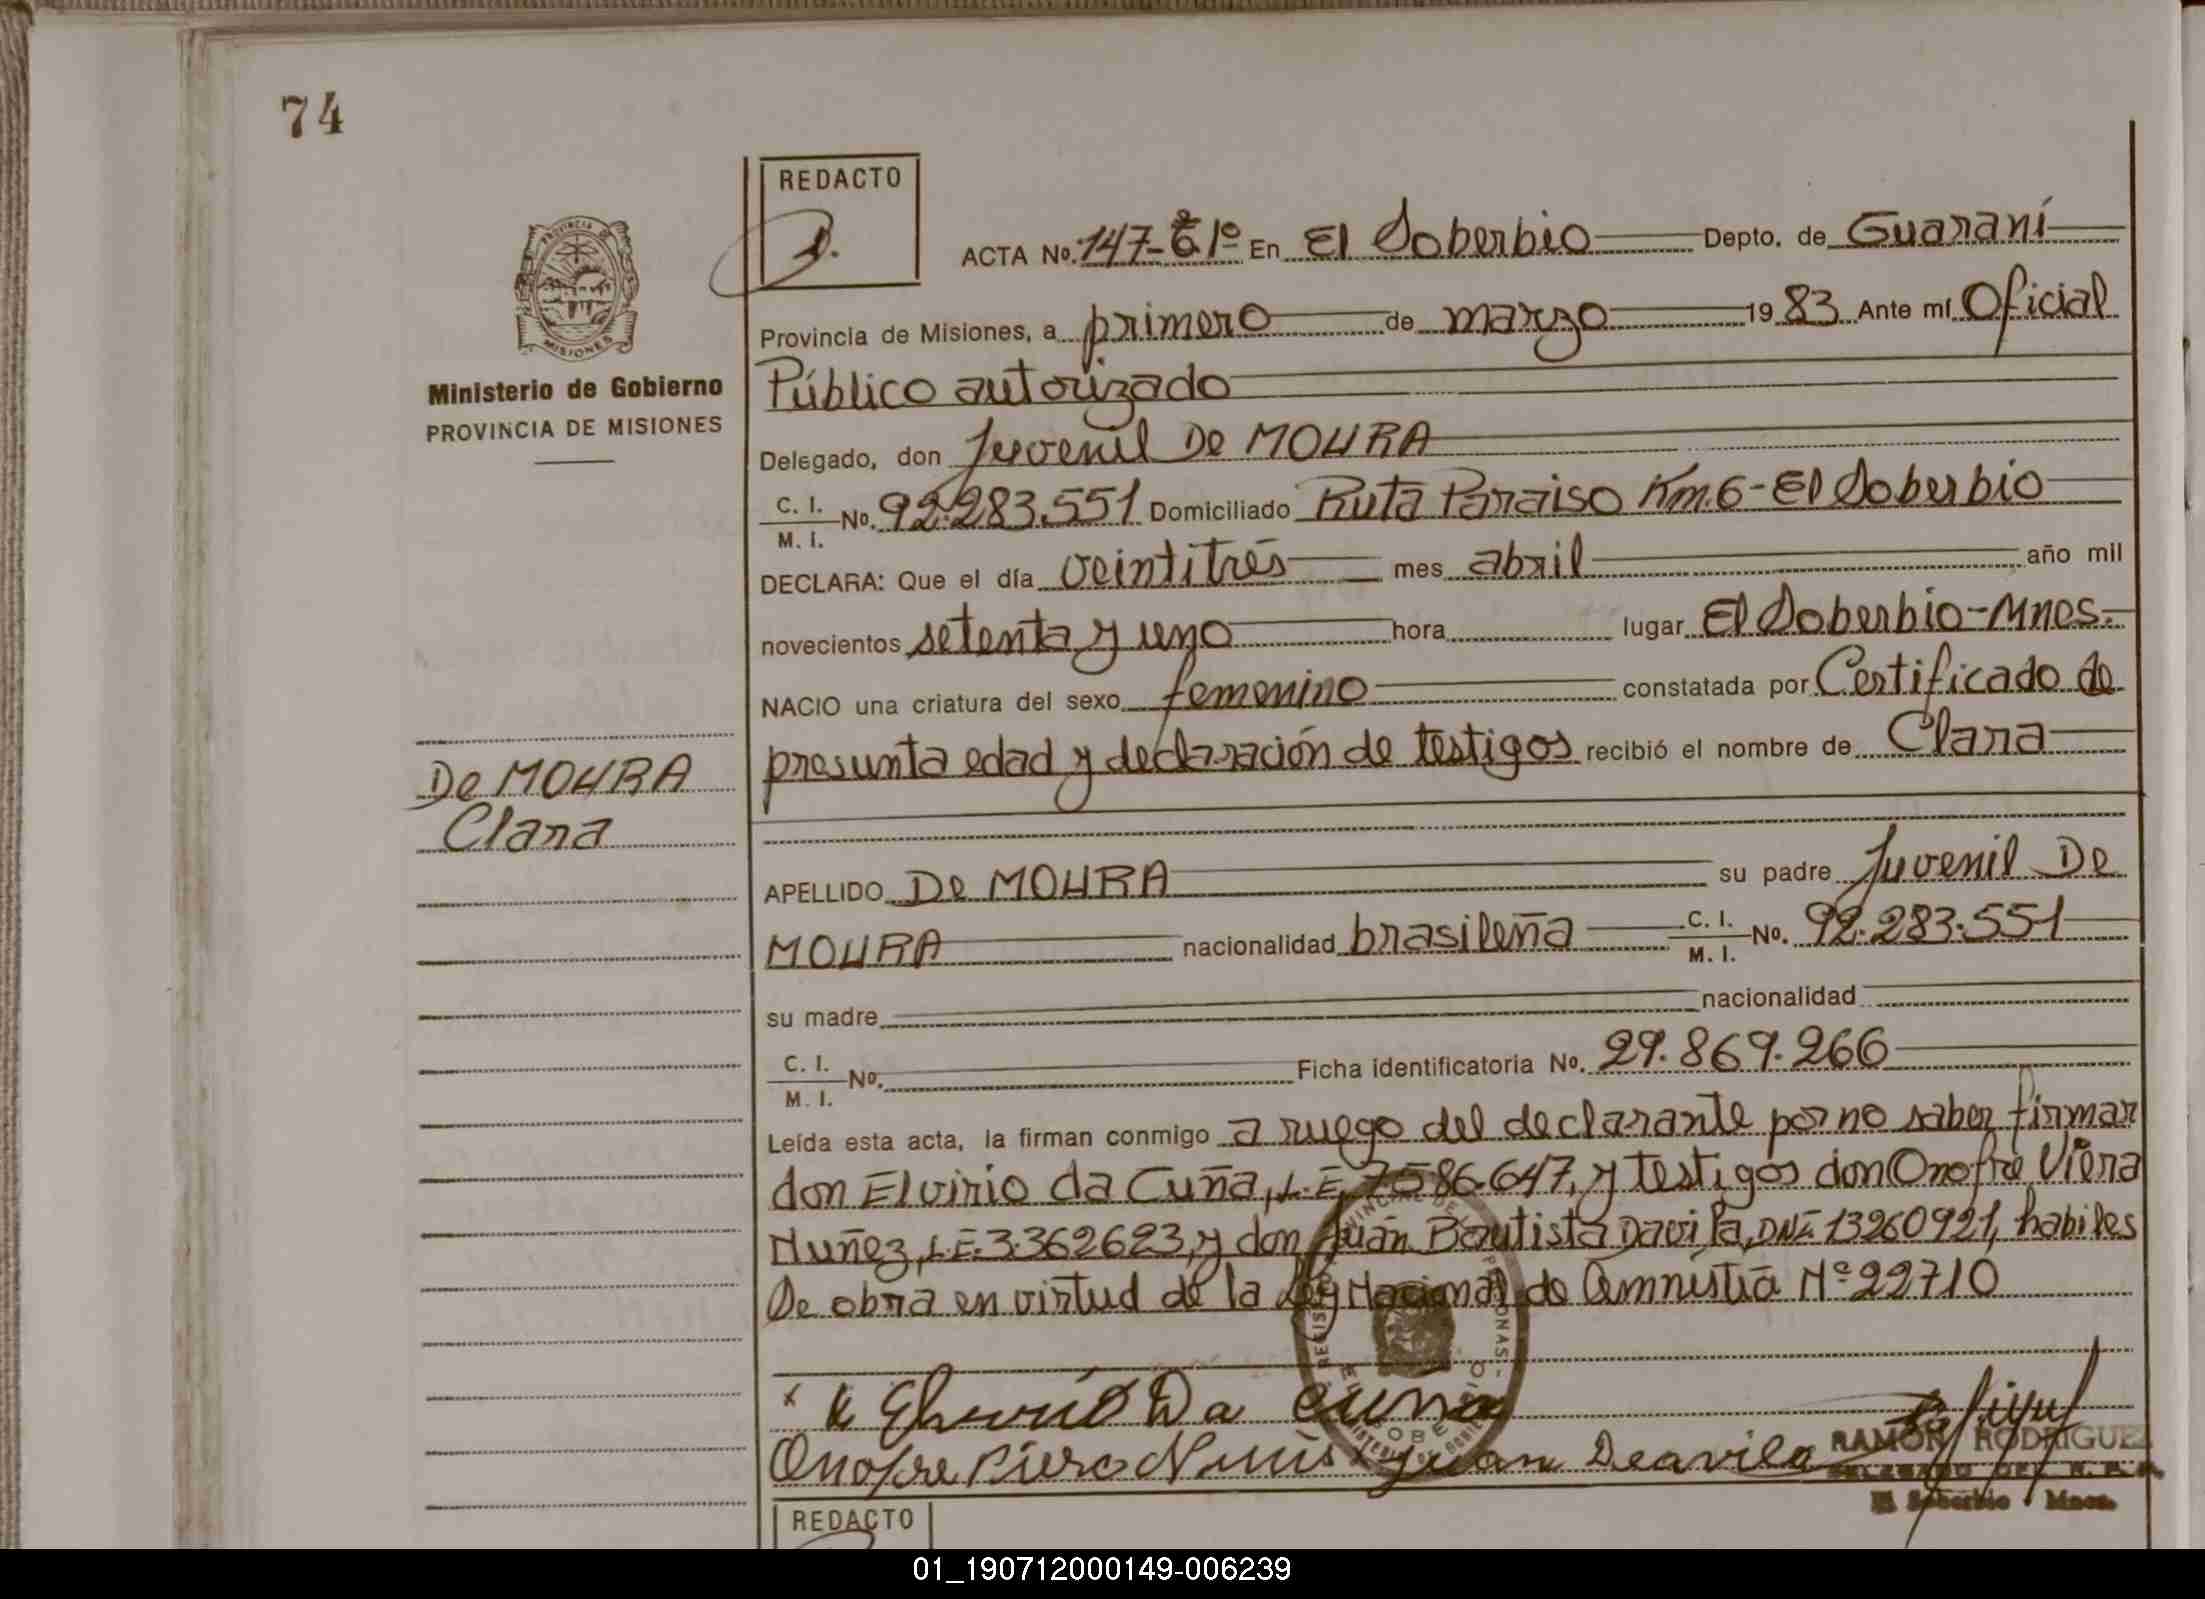 74
REDACTO
ACTA No. 147-1º En El Soberbio Depto. de Guaraní
Provincia de Misiones, a primero de marzo 1983 Ante mí Oficial
Público autorizado
Delegado, don Juvenil De MOURA
C. I. / M. I. No. 92.283.551 Domiciliado Ruta Paraiso Km.6-El Soberbio
DECLARA: Que el día veintitrés mes abril año mil
novecientos setenta y uno hora lugar El Soberbio-Mnes.
NACIO una criatura del sexo femenino constatada por Certificado de
presunta edad y declaración de testigos recibió el nombre de Clara
APELLIDO De MOURA su padre Juvenil De
MOURA nacionalidad brasileña C. I. / M. I. No. 92.283.551
su madre nacionalidad
C. I. / M. I. No. Ficha identificatoria No. 29.869.266
Leída esta acta, la firman conmigo a ruego del declarante por no saber firmar
don Elvirio da Cuña, L.E. 7586.647, y testigos don Onofre Viera
Nuñez, L.E. 3.362623, y don Juan Bautista Davila, DNI 13260921, habiles
De obra en virtud de la Ley Nacional de Amnistia Nº 22710
Da Cuna
Onofre Juan Deavila
RAMON RODRIGUEZ
El Soberbio - Mnes.
PROVINCIA
MISIONES
Ministerio de Gobierno
PROVINCIA DE MISIONES
De MOURA
Clara
REDACTO
01_190712000149-006239